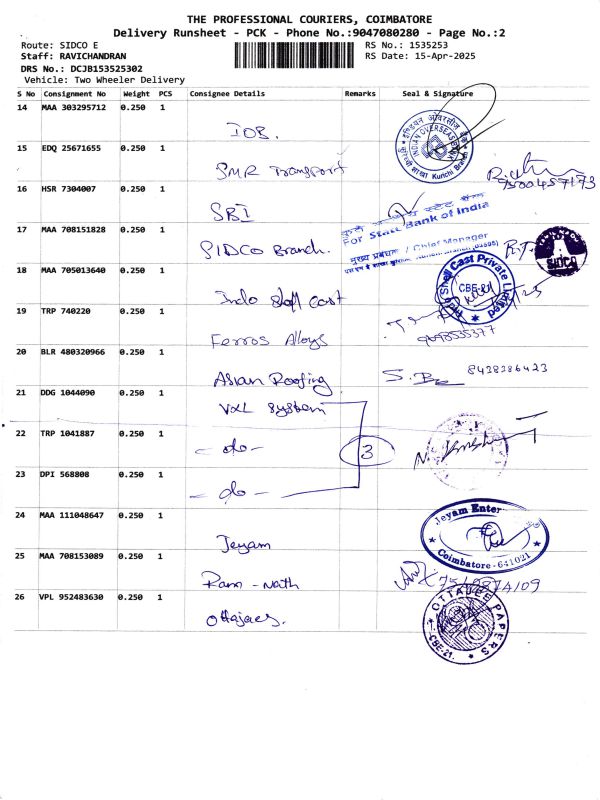 THE PROFESSIONAL COURIERS, COIMBATORE
Delivery Runsheet - PCK - Phone No.:9047080280 - Page No.:2
Route: SIDCO E
RS No.: 1535253
Staff: RAVICHANDRAN
RS Date: 15-Apr-2025
DRS No.: DCJB153525302
Vehicle: Two Wheeler Delivery
S No Consignment No Weight PCS Consignee Details Remarks Seal & Signature
14 MAA 303295712 0.250 1
IOB.
INDIAN OVERSEAS BANK
Kurichi Branch
15 EDQ 25671655 0.250 1
SMR Transport
16 HSR 7304007 0.250 1
SBI
For State Bank of India
17 MAA 708151828 0.250 1
SIDCO Branch.
मुख्य प्रबंधक / Chief Manager
SIDCO
18 MAA 705013640 0.250 1
Indo Shell Cast
Indo Shell Cast Private Limited
CBE-21
19 TRP 740220 0.250 1
Ferros Alloys
20 BLR 480320966 0.250 1
Asian Roofing
S. 8438286423
21 DDG 1044090 0.250 1
VXL System
22 TRP 1041887 0.250 1
- do -
3
23 DPI 568808 0.250 1
- do -
24 MAA 111048647 0.250 1
Jeyam
Jeyam Enter
Coimbatore - 641021
25 MAA 708153089 0.250 1
Ram - Nath
26 VPL 952483630 0.250 1
Ottajaes.
OTTAJEE PAPERS
CBE-21.